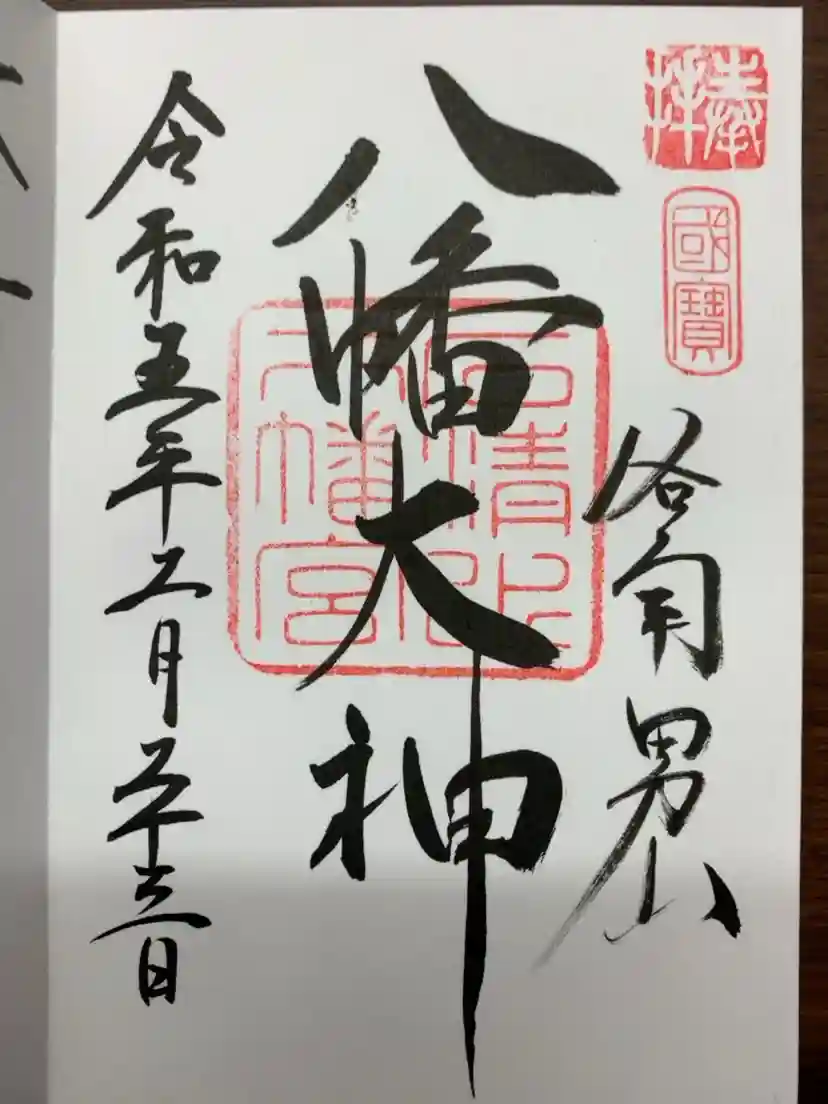 奉拝
國寶
洛南男山
八幡大神
石清水
八幡宮
令和五年二月二十三日